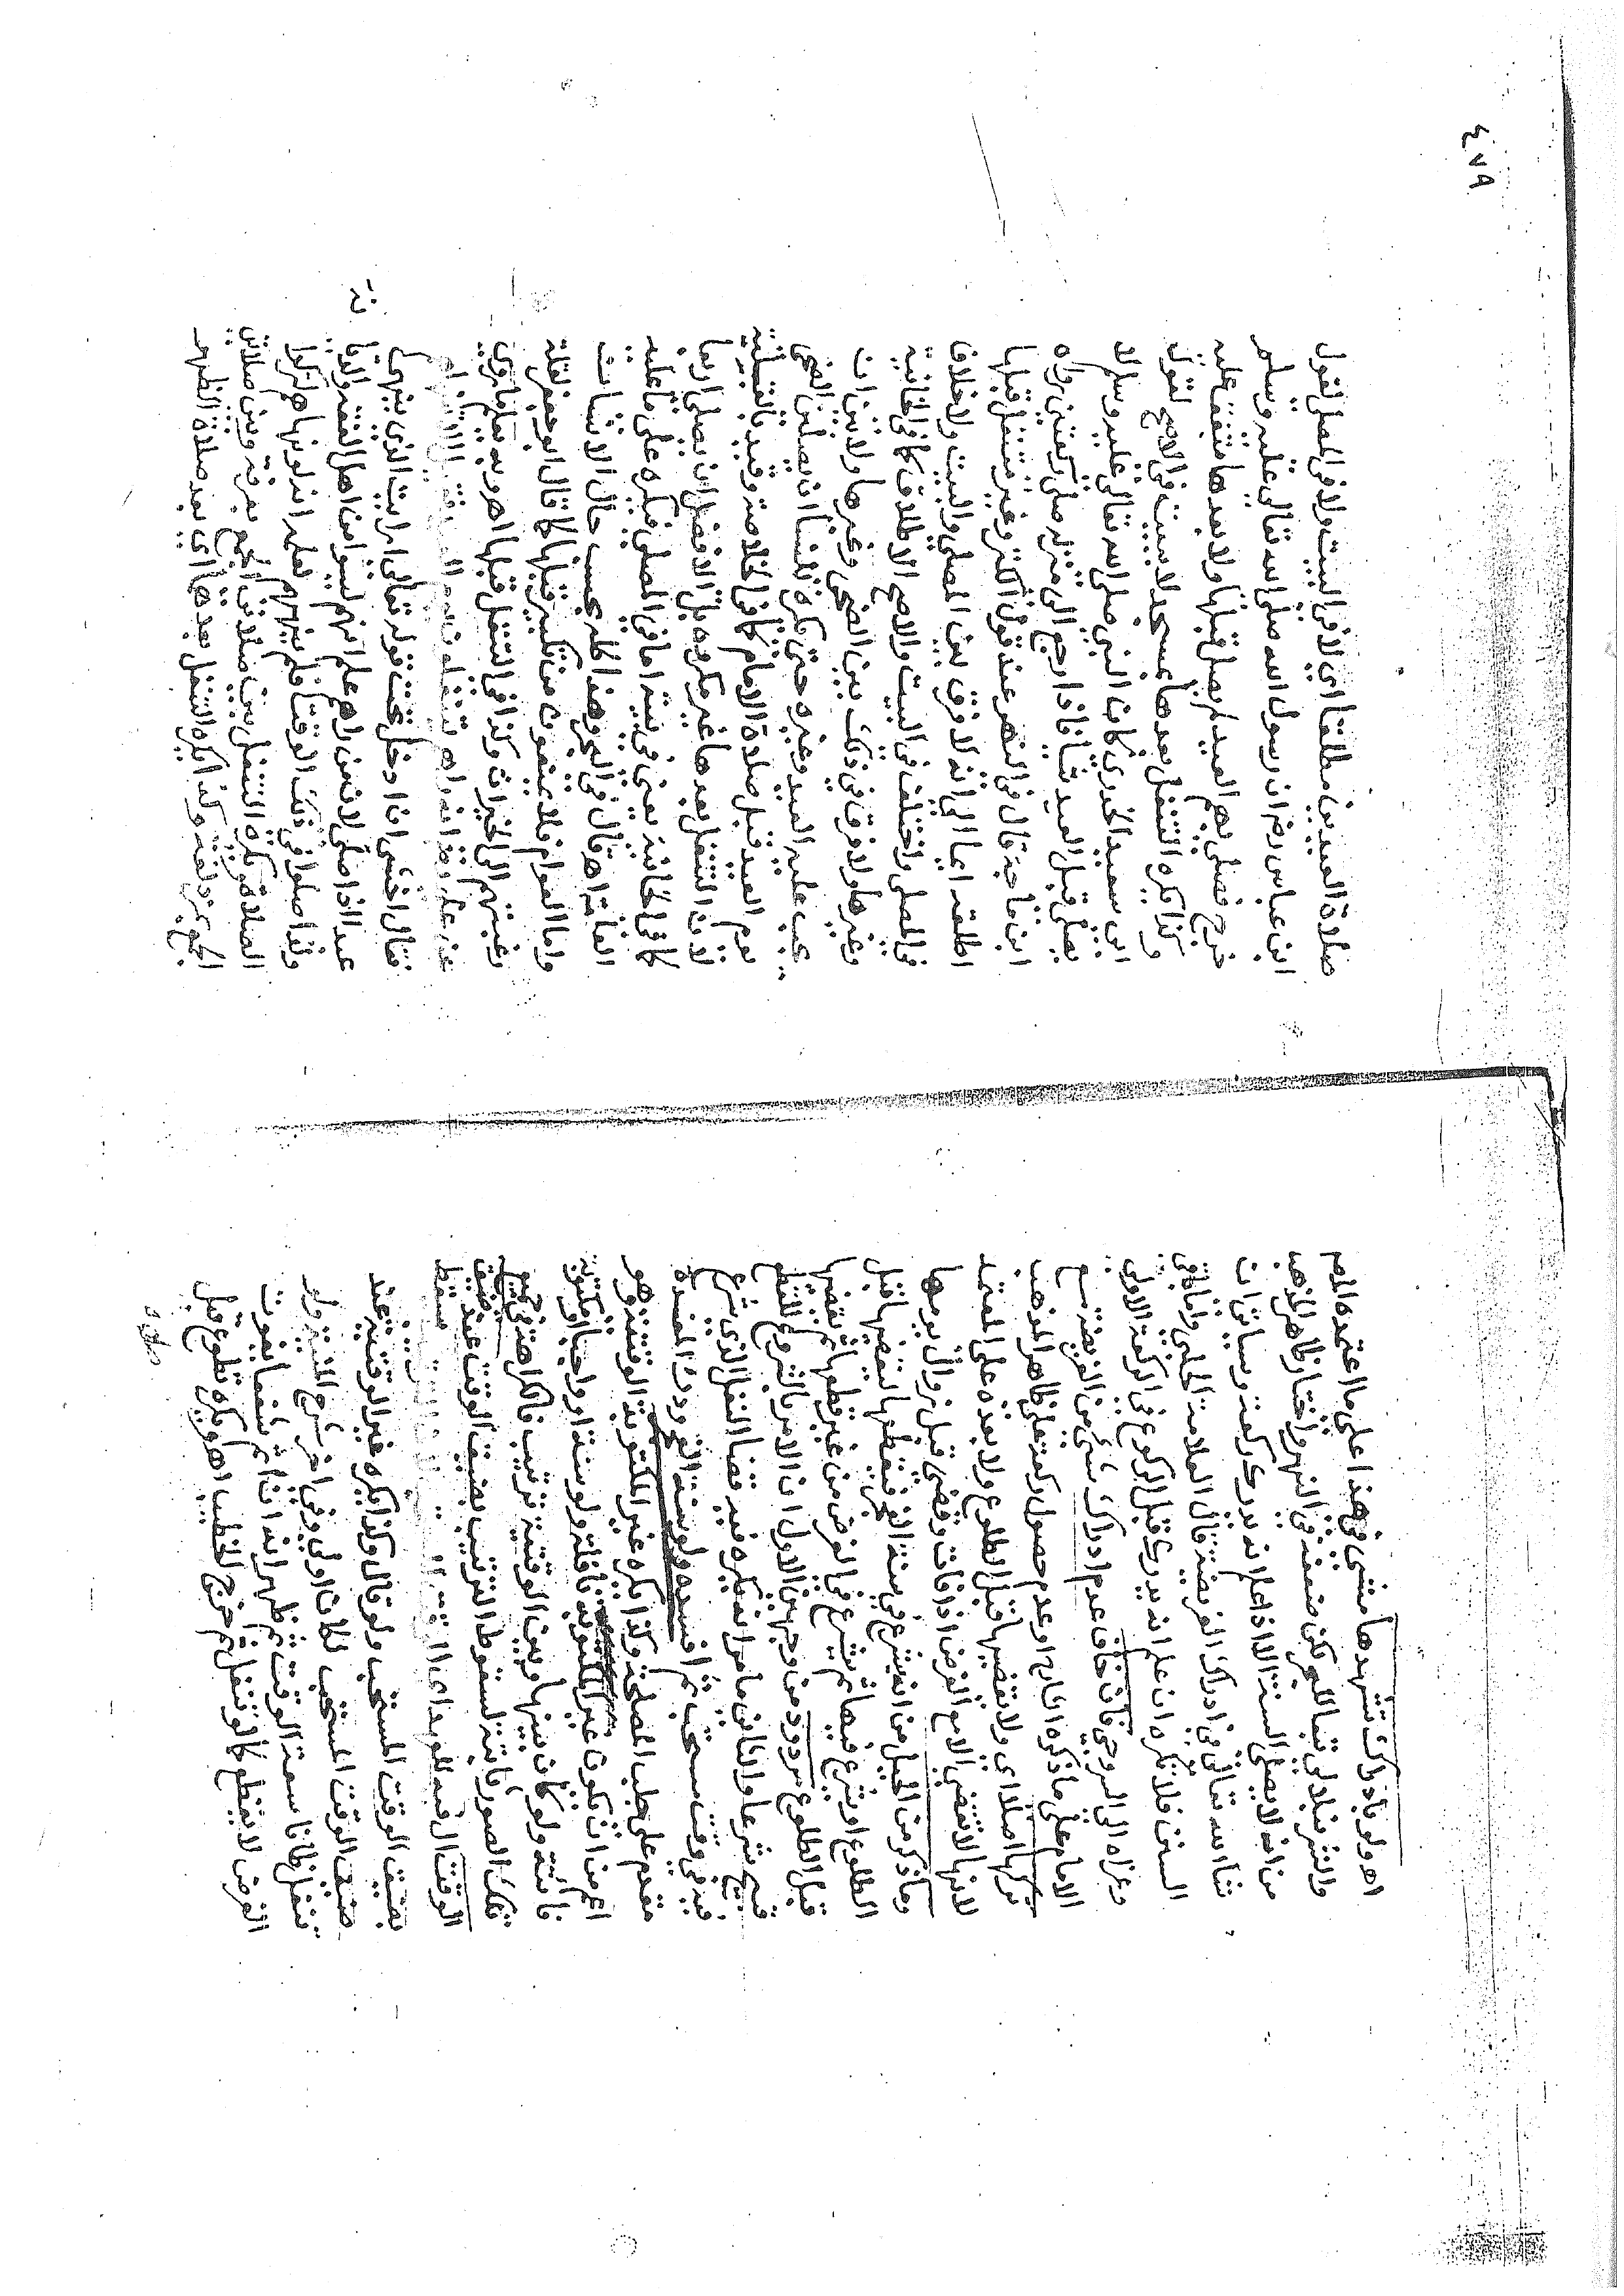 اه ولو بادراك تشهدها مشى في هذا على ما اعتمده المص
والشرنبلالي تبعا للبحر لكن ضعفه في النهر واختار ظاهر المذهب
من انه لا يصلي السنة الا اذا علم انه يدرك ركعة وسياتي ان
شا الله تعالى في ادراك الفريضة قال العلامة الحلبي واما باقي
السنن فلا تكره ان علم انه يدركه قبل الركوع في الركعة الاولى
وعزاه الى السروجي فان خاف عدم ادراك شيء من الفريضة مع
الامام على ما ذكره الشارح او عدم حصول ركعة على ظاهر المذهب
تركها اصلا اي ولا يقضيها قبل الطلوع ولا بعده على المعتمد
لانها لا تقضى الا مع الفرض اذا فات وقضى قبل زوال يومها
وما ذكر من الحيل من انه يشرع في سنة الفجر فيقطعها ثم يقضيها قبل
الطلوع او يشرع فيها ثم يشرع في الفرض من غير قطعها ثم يقضيها
قبل الطلوع مردود من وجهين الاول ان الامر بالشروع للقطع
قبيح شرعا والثاني ما مر انه يكره فيه قضا النفل الذي شرع
فيه في وقت مستحب ثم افسده ولو سنة الفجر ودرء المفسدة
مقدم على جلب المصلحة وكذا يكره غير المكتوبة الوقتية وهو
اعم من ان تكون غير المكتوبة نافلة ولو سنة او واجبا او مكتوبة
فائتة ولو كان بينها وبين الوقتية ترتيب فالكراهة في جميع
تلك الصور ثابتة لسقوط الترتيب بضيق الوقت عند ضيق
الوقت ال فيه للعهد اي الوقت يسقط
بضيق الوقت المستحب ولو قال وكذا يكره غير الوقتية عند
ضيق الوقت المستحب لكان اولى وفي اخر شرح المنية ولو
تنفل ظانا سعة الوقت ثم ظهر انه ان اتم شفعا يفوت
الفرض لا يقطع كما لو تنفل ثم خرج الخطيب اه ويكره تطوع قبل
صلاة
٤٧٩
صلاة العيدين مطلقا اي لا في البيت ولا في المصلى لقول
ابن عباس رضـ ان رسول الله صلى الله تعالى عليه وسلم
خرج فصلى بهم العيد لم يصل قبلها ولا بعدها متفق عليه
وكذا يكره التنفل بعدها بمسجد لا ببيت في الاصح لقول
ابي سعيد الخدري كان النبي صلى الله تعالى عليه وسلم لا
يصلي قبل العيد شيا فاذا رجع الى منزله صلى ركعتين رواه
ابن ماجة قال في النهر عند قول الكنز وغير متنفل قبلها
اطلقه ايما الى انه لا فرق بين المصلى والبيت ولا خلاف
في المصلى واختلف في البيت والاصح الاطلاق كما في الخانية
وغيرها ولا فرق في ذلك بين الضحى وغيرها ولا بين ان
يجب عليه العيد وغيره حتى يكره للنسا ان يصلين الضحى
يوم العيد قبل صلاة الامام كما في الخلاصة وقيد بالقبلية
لان التنفل بعدها غير مكروه بل الافضل ان يصلي اربعا
كما في الخانية يعني في بيته اما في المصلى فيكره على ما عليه
العامة اه قال في البحر وهذا كله بحسب حال الانسان
واما العوام فلا يمنعون من تكبير قبلها كما قال ابو جعفر لقلة
رغبتهم الى الخيرات وكذا في التنفل قبلها اهـ ويؤيده ما روي
عن علي رضـ انه راه
فقال اخشى ان ادخل تحت قوله تعالى ارايت الذي ينهى
عبدا اذا صلى لا نهـ علم انهم ليسوا من اهل الفقه وانما
وقد اصلوا في ذلك الوقت فلم ينههم لعله انه لو نهاهم لتركوا
الصلاة ويكره التنفل بين صلاتي الجمع بعرفة وبين صلاتي
الجمع بمزدلفة وكذا يكره التنفل بعدها اي بعد صلاة الظهر